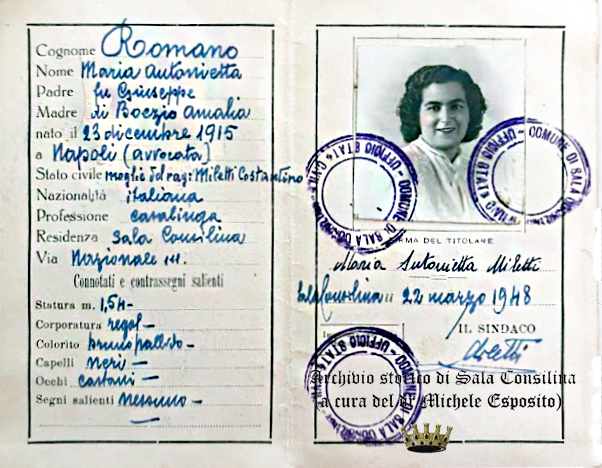 Cognome Romano
Nome Maria Antonietta
Padre fu Giuseppe
Madre di Boezio Amalia
nato il 23 dicembre 1915
a Napoli (avvocata)
Stato civile moglie del rag: Miletti Costantino
Nazionalità italiana
Professione casalinga
Residenza Sala Consilina
Via Nazionale 111.
Connotati e contrassegni salienti
Statura m. 1,54-
Corporatura regol-
Colorito bruno pallido-
Capelli neri-
Occhi castani-
Segni salienti nessuno-
UFFICIO STATO CIVILE
COMUNE DI SALA CONSILINA
UFFICIO STATO
COMUNE DI SALA
FIRMA DEL TITOLARE
Maria Antonietta Miletti
Sala Consilina li 22 marzo 1948
IL SINDACO
UFFICIO STATO
COMUNE DI SALA
Archivio storico di Sala Consilina
a cura del di Michele Esposito)